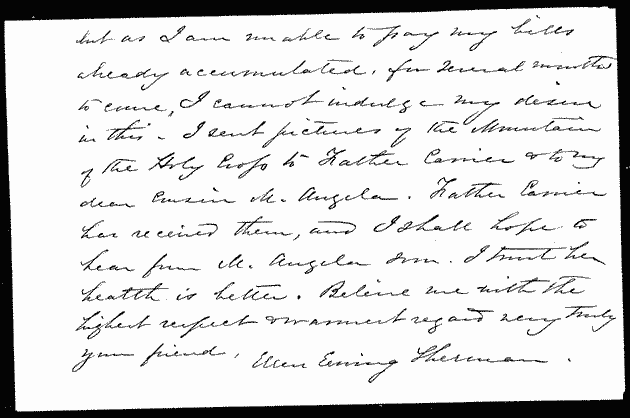 but as I am unable to pay my bills
already accumulated, for several months
to come, I cannot indulge my desire
in this - I sent pictures of the Mountain
of the Holy Cross to Father Carrier & to my
dear Cousin M. Angela. Father Carrier
has received them, and I shall hope to
hear from M. Angela soon. I trust her
health is better. Believe me with the
highest respect & warmest regard very truly
your friend, Ellen Ewing Sherman.